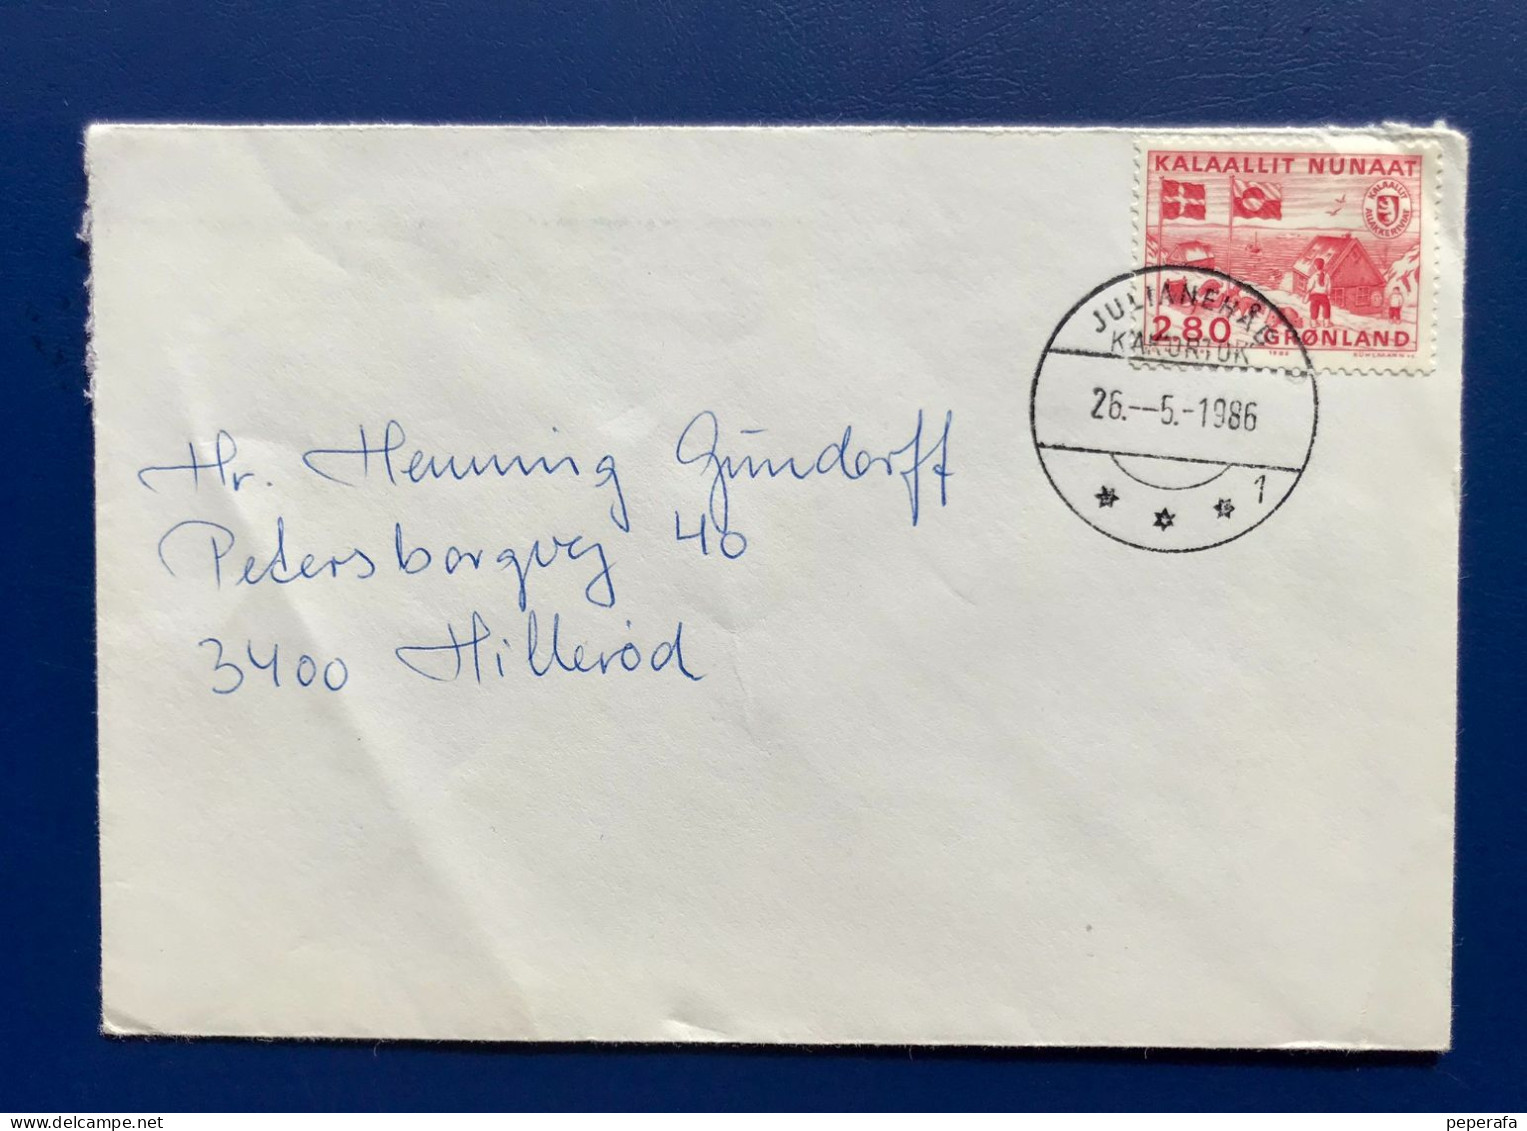 KALAALLIT NUNAAT
KALAALLIT
2.80 GRØNLAND
1986
JULIANEHÅB
KAKORTOK
26.--5.-1986
1
Hr. Henning Gündorff
Petersborgvej 40
3400 Hillerød
peperafa